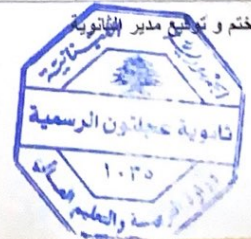 ختم و توقيع مدير الثانوية
الجمهورية اللبنانية
ثانوية عجلتون الرسمية
١٠٣٥
وزارة التربية والتعليم العالي